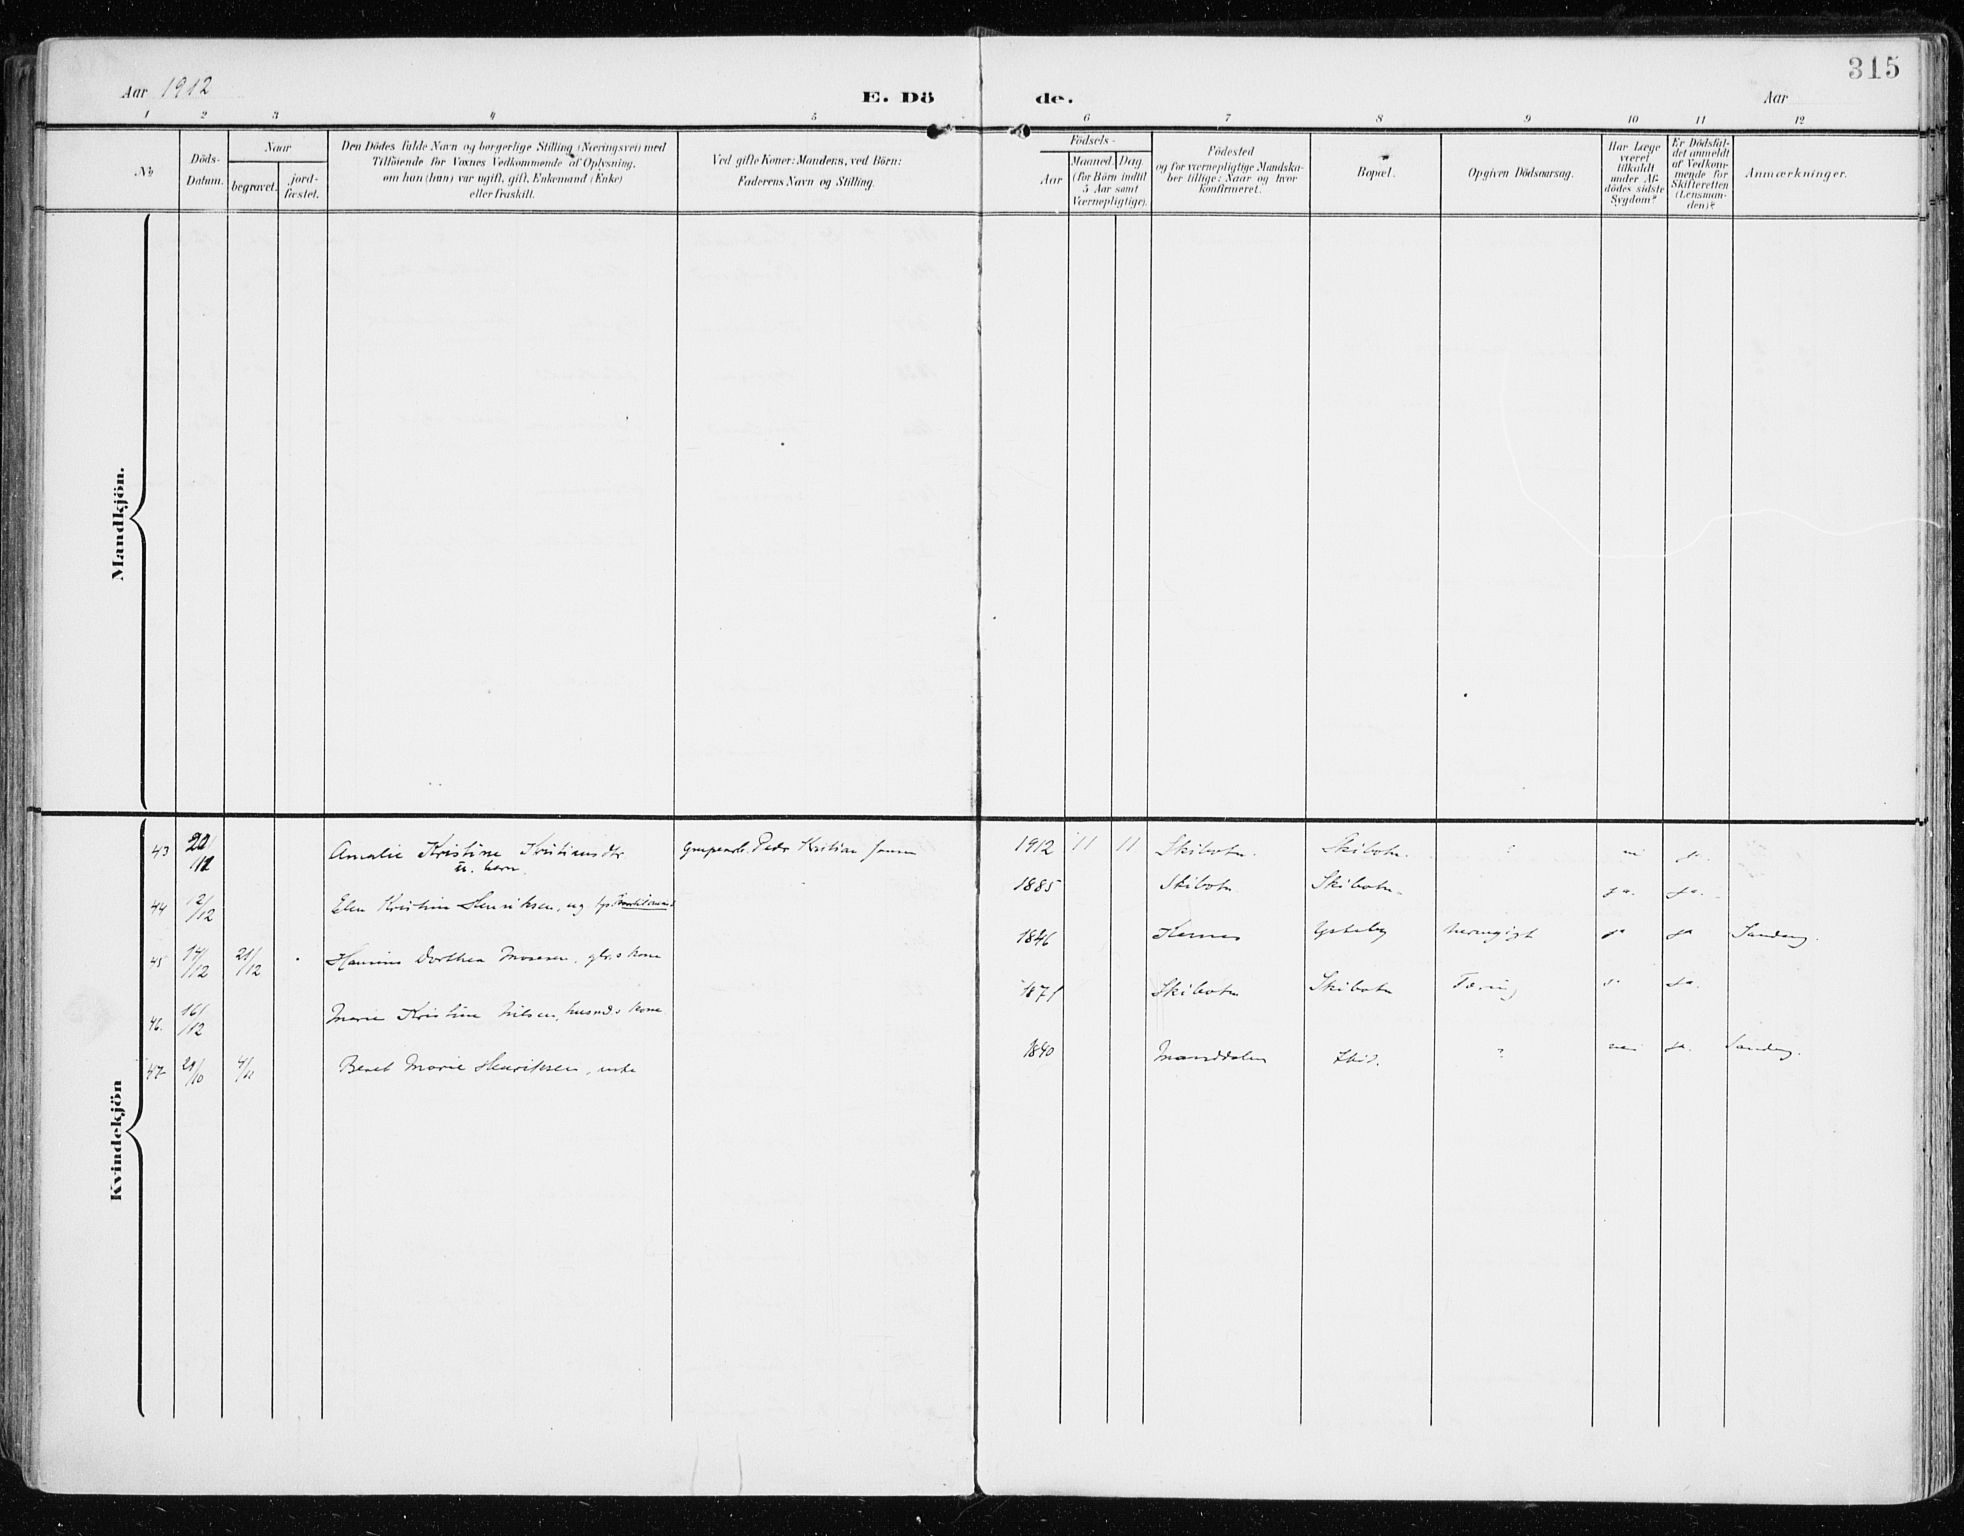 315
Aar 1912
E. Dö
de.
Aar
1 2 3 4 5 6 7 8 9 10 11 12
No
Döds-
Datum.
Naar
begravet.
jord-
fæstet.
Den Dödes fulde Navn og borgerlige Stilling (Næringsvei) med
Tilföiende for Voxnes Vedkommende af Oplysning,
om han (hun) var ugift, gift, Enkemand (Enke)
eller fraskilt.
Ved gifte Koner: Mandens, ved Börn:
Faderens Navn og Stilling.
Födsels-
Aar
Maaned. Dag.
(for Börn indtil
5 Aar samt
Værnepligtige).
Födested
og for værnepligtige Mandska-
ber tillige: Naar og hvor
konfirmeret.
Bopæl.
Opgiven Dödsaarsag.
Har Læge
været
tilkaldt
under Af-
dödes sidste
Sygdom?
Er Dödsfal-
det anmeldt
af Vedkom-
mende for
Skifteretten
(Lensman-
den)?
Anmærkninger.
Mandkjön.
Kvindekjön
43 20/12 Amalie Kristine Kristiansdtr. Peder Kristian Jensen 1912 11 11 Skibotn. Skibotn. ? ja.
u. barn.
44 2/12 Elen Kristine Henriksen, ug. 1885 Skibotn Skibotn. ja. ja.
45 14/12 21/12 Dorthea Mosesen, kone 1846 Kernes ja ja Sandeng.
46. 16/12 Marie Kristine Nilsen, husmds kone 1871 Skibotn Skibotn Tæring ja.
47 29/10 4/11 Beret Marie Henriksen, enke 1840 Manddalen ? nei ja. Sandeng.